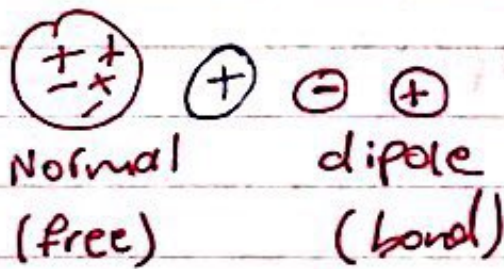 + + - + - + - +
Normal dipole
(free) (bond)